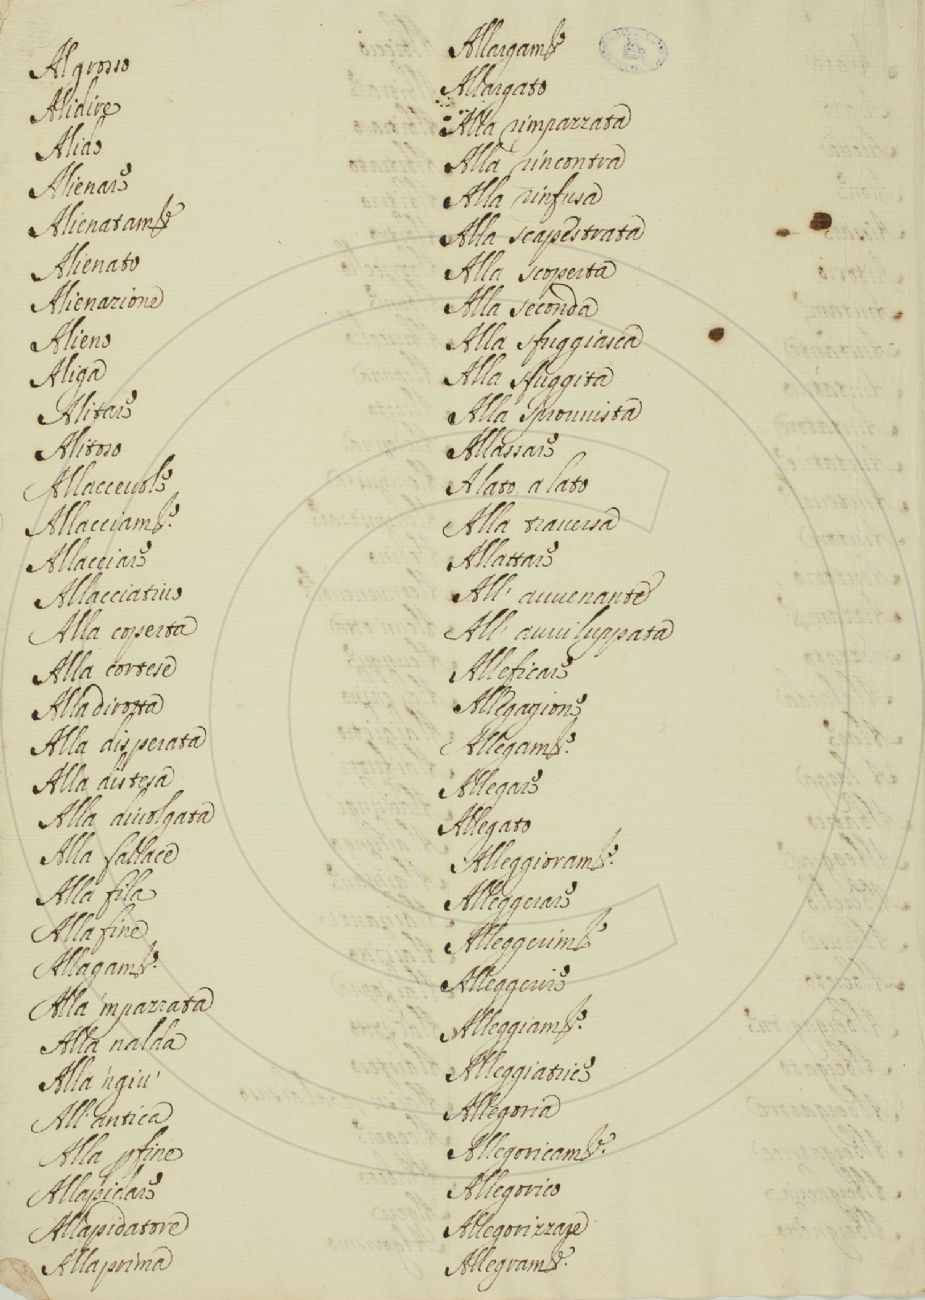 Algrosso
Alidire
Alido
Alienarᵉ
Alienatamᵗᵉ
Alienato
Alienazione
Alieno
Aliga
Alitarᵉ
Alitoso
Allaccevolᵉ
Allacciamᵗᵒ.
Allacciarᵉ
Allacciativo
Alla coperta
Alla cortese
Alla dirotta
Alla disperata
Alla distesa
Alla divolgata
Alla fallace
Alla fila
Alla fine
Allagamᵗᵒ.
Alla 'mpazzata
Alla nalda
Alla 'ngiu'
All' antica
Alla pfine
Allapidarᵉ
Allapidatore
Allaprima
Allargamᵗᵒ
Allargato
Alla rimpazzata
Alla rincontra
Alla rinfusa
Alla scapestrata
Alla scoperta
Alla seconda
Alla sfuggiasca
Alla sfuggita
Alla sprouuista
Allassarᵉ
Alato, a lato
Alla trauersa
Allattarᵉ
All' auuenante
All' auuiluppata
Alleficarᵉ
Allegagionᵉ
Allegamᵗᵒ.
Allegarᵉ
Allegato
Alleggioramᵗᵒ.
Alleggerarᵉ
Alleggerimᵗᵒ
Alleggerirᵉ
Alleggiamᵗᵒ.
Alleggiatricᵉ
Allegoria
Allegoricamᵗᵉ.
Allegorico
Allegorizzare
Allegramᵗᵉ.